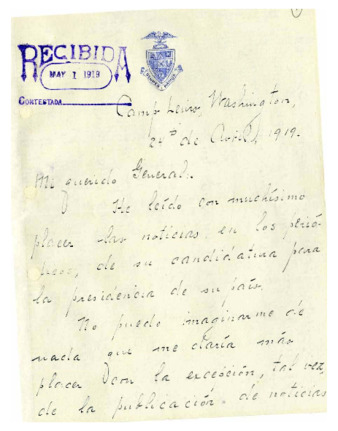 RECIBIDA
MAY 1 1919
CONTESTADA
Camp Lewis, Washington,
24 de Avril, 1919.
Mi querido General:
He leído con muchísimo
placer las noticias, en los perió-
dicos, de su candidatura para
la presidencia de su país.
No puedo imaginarme de
nada que me daría más
placer con la excepción, tal vez,
de la publicación de noticias